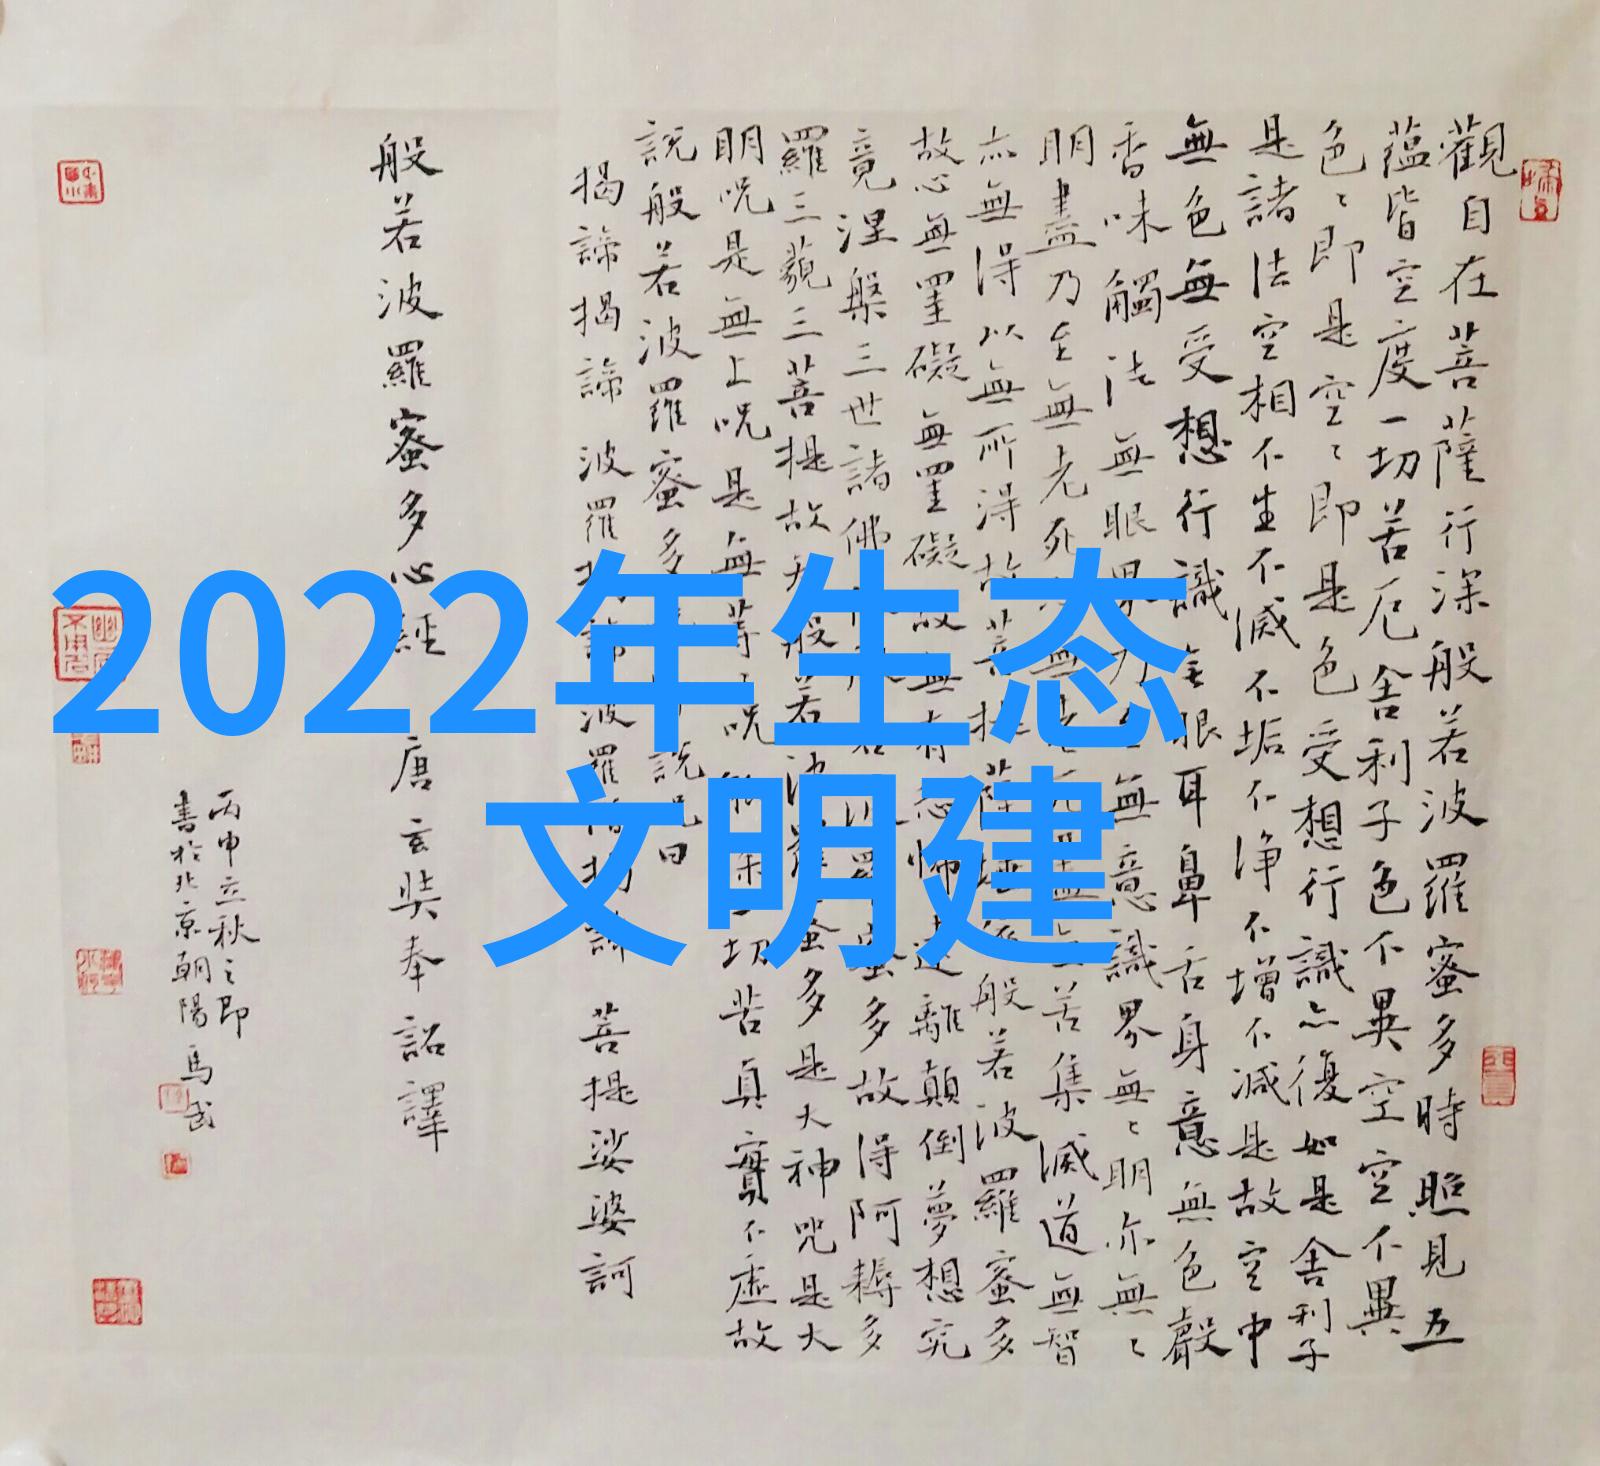 觀自在菩薩行深般若波羅蜜多時照見五
蘊皆空度一切苦厄舍利子色不異空空不異
色〻即是空〻即是色受想行識亦復如是舍利子
是諸法空相不生不滅不垢不淨不增不減是故空中
無色無受想行識無眼耳鼻舌身意無色聲
香味觸法無眼界乃無意識界無〻明亦無〻
明盡乃至無老死無苦集滅道無智
亦無得以無所得故菩提薩埵依般若波羅蜜多
故心無罣礙無罣礙故無有恐怖遠離顛倒夢想究
竟涅槃三世諸佛若波羅蜜多故得阿耨多
羅三藐三菩提故知般若波羅蜜多是大神咒是大
明呪是無上呪是無等呪能除一切苦真實不虛故
說般若波羅蜜多說呪曰
揭諦揭諦 波羅揭諦 波羅僧揭諦 菩提娑婆訶
般若波羅蜜多心經 唐玄奘奉詔譯
丙申立秋之即
書於北京朝陽 馬武
2022年生态
文明建